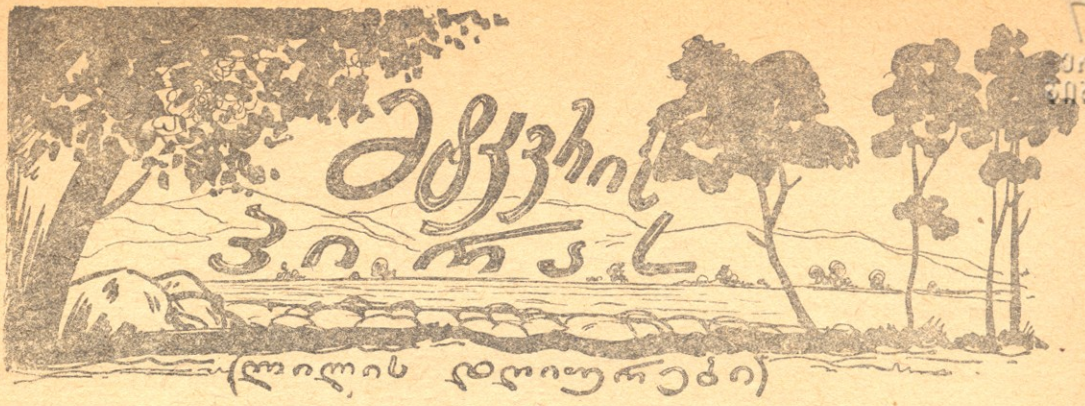 მტკვრის
პირას
(ლილის დღიურები)